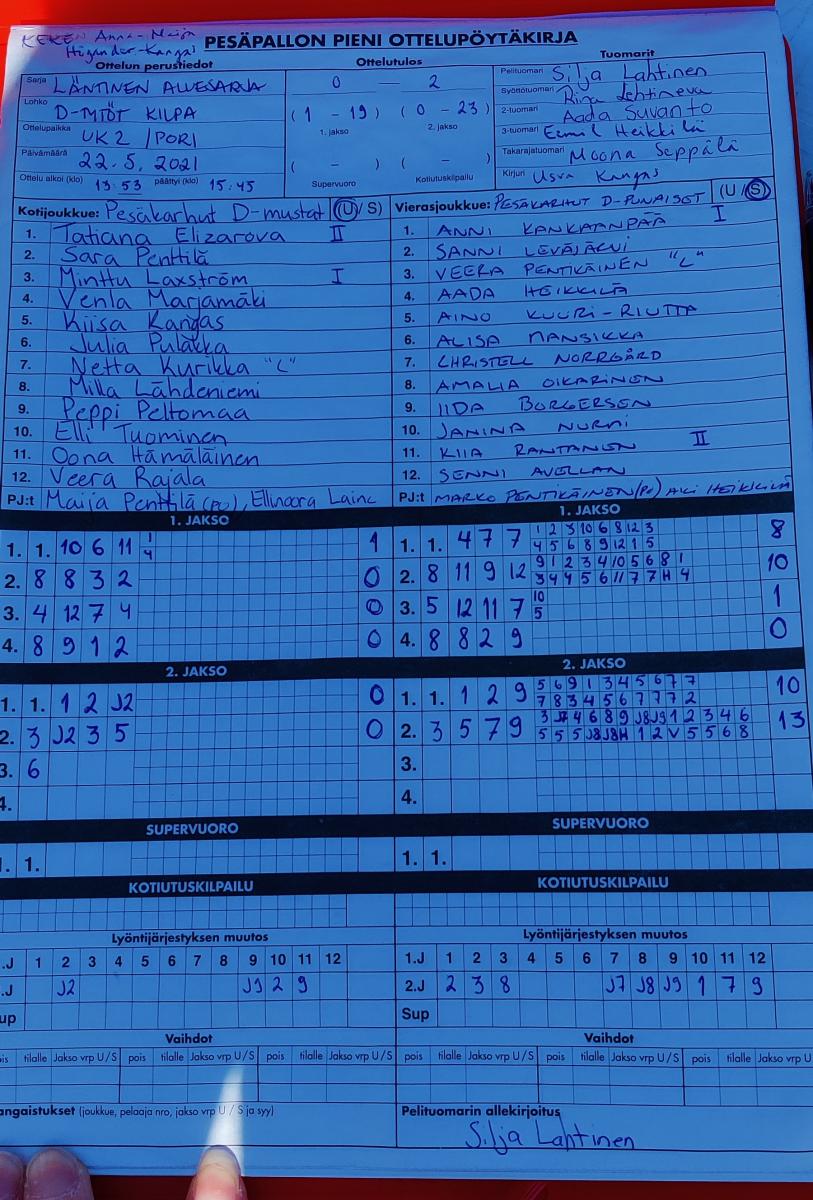 KEKEN Anna-Maija
Högander-Kangas
PESÄPALLON PIENI OTTELUPÖYTÄKIRJA
Ottelun perustiedot Ottelutulos Tuomarit
Sarja LÄNTINEN ALUESARJA
Lohko D-TYTÖT KILPA
Ottelupaikka UK2 / PORI
Päivämäärä 22.5.2021
Ottelu alkoi (klo) 13:53 päättyi (klo) 15:45
0 – 2
(1 – 19) (0 – 23)
1. jakso 2. jakso
( – ) ( – )
Supervuoro Kotiutuskilpailu
Pelituomari Silja Lahtinen
Syöttötuomari Riina Lehtineva
2-tuomari Aada Suvanto
3-tuomari Eemil Heikkilä
Takarajatuomari Moona Seppälä
Kirjuri Usva Kangas
Kotijoukkue: Pesäkarhut D-mustat (U/S)
1. Tatiana Elizarova II
2. Sara Penttilä
3. Minttu Laxström I
4. Venla Marjamäki
5. Kiisa Kangas
6. Julia Pulakka
7. Netta Kurikka "L"
8. Milla Lähdeniemi
9. Peppi Peltomaa
10. Elli Tuominen
11. Oona Hämäläinen
12. Veera Rajala
PJ:t Maija Penttilä (PV), Ellinoora Laine
Vierasjoukkue: PESÄKARHUT D-PUNAISET (U/S)
1. ANNI KANKAANPÄÄ I
2. SANNI LEVÄJÄRVI
3. VEERA PENTIKÄINEN "L"
4. AADA HEIKKILÄ
5. AINO KUURI-RIUTTA
6. ALISA MANSIKKA
7. CHRISTELL NORRGÅRD
8. AMALIA OIKARINEN
9. IIDA BORGERSEN
10. JANINA NURMI
11. KIIA RANTANEN II
12. SENNI AVELLAN
PJ:t MARKO PENTIKÄINEN (PV) AKI HEIKKILÄ
1. JAKSO
1. 1. 10 6 11 1 1
4
2. 8 8 3 2 0
3. 4 12 7 4 0
4. 8 9 1 2 0
1. JAKSO
1. 1. 4 7 7 1 2 3 10 6 8 12 3 8
4 5 6 8 9 12 1 5
2. 8 11 9 12 9 1 2 3 4 10 5 6 8 1 10
3 4 4 5 6 11 7 7 H 4
3. 5 12 11 7 10 1
5
4. 8 8 2 9 0
2. JAKSO
1. 1. 1 2 J2 0
2. 3 J2 3 5 0
3. 6
4.
2. JAKSO
1. 1. 1 2 9 5 6 9 1 3 4 5 6 7 7 10
7 8 3 4 5 6 7 7 7 2
2. 3 5 7 9 3 J7 4 6 8 9 J8 J9 1 2 3 4 6 13
5 5 5 J8 J8 H 1 2 V 5 5 6 8
3.
4.
SUPERVUORO
1. 1.
SUPERVUORO
1. 1.
KOTIUTUSKILPAILU
KOTIUTUSKILPAILU
Lyöntijärjestyksen muutos
.J 1 2 3 4 5 6 7 8 9 10 11 12
.J J2 J9 2 9
up
Lyöntijärjestyksen muutos
1.J 1 2 3 4 5 6 7 8 9 10 11 12
2.J 2 3 8 J7 J8 J9 1 7 9
Sup
Vaihdot
ois tilalle Jakso vrp U/S pois tilalle Jakso vrp U/S pois tilalle Jakso vrp U/S
Vaihdot
pois tilalle Jakso vrp U/S pois tilalle Jakso vrp U/S pois tilalle Jakso vrp U
angaistukset (joukkue, pelaaja nro, jakso vrp U / S ja syy)
Pelituomarin allekirjoitus
Silja Lahtinen